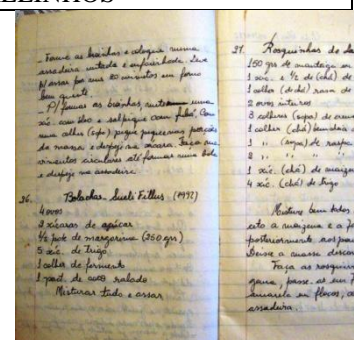 LLINHOS
- Forme as bolinhas e coloque numa
assadeira untada e enfarinhada. Leve
p/ assar por uns 20 minutos em forno
bem quente.
- P/ formar as bolinhas unte uma
xíc. com óleo e salpique com fubá. Com
uma colher (sopa) pegue pequenas porções
da massa e despeje na xícara. Faça mo
vimentos circulares até formar uma bola
e despeje na assadeira.
36. Bolachas Sueli Fellus. (1992)
4 ovos
2 xícaras de açúcar
1/2 pote de margarina (250 grs)
5 xíc. de trigo
1 colher de fermento
1 pact. de coco ralado
Misturar tudo e assar
37. Rosquinhas de
150 grs de manteiga ou
1 xíc. e 1/2 de (chá) de
1 colher (de chá) rasa de
2 ovos inteiros
3 colheres (sopa) de
1 colher (chá) baunilha
1 " (sopa) de raspa
2 "
1 xíc. (chá) de maizena
4 xíc. (chá) de trigo
Misture bem todos
a maizena e a
posteriormente
Deixe a massa
Faça as rosquinhas
passe
amarelo em flocos,
assadeira.